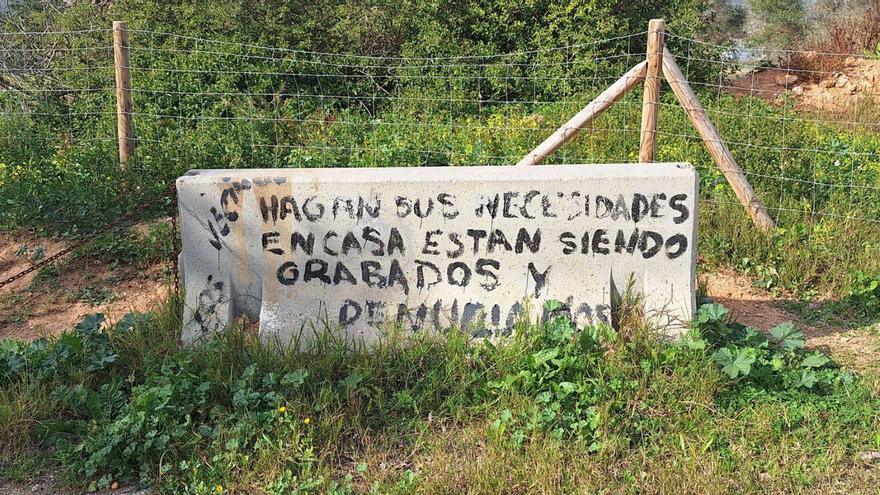 HAGAN SUS NECESIDADES
EN CASA ESTAN SIENDO
GRABADOS Y
DENUNCIADOS